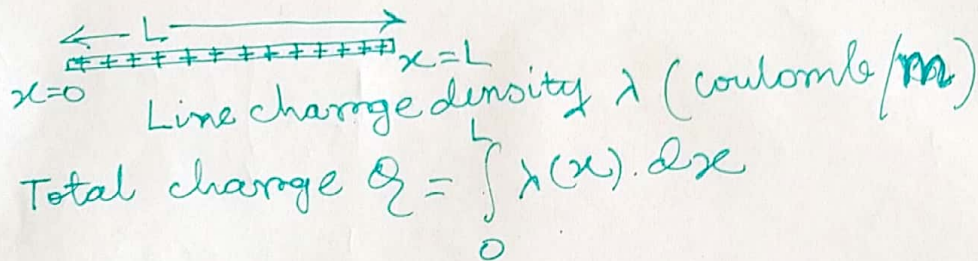 L
+ + + + + + + + + + + +
x=0 x=L
Line charge density λ (coulomb/m)
Total charge Q = ∫₀ᴸ λ(x).dx